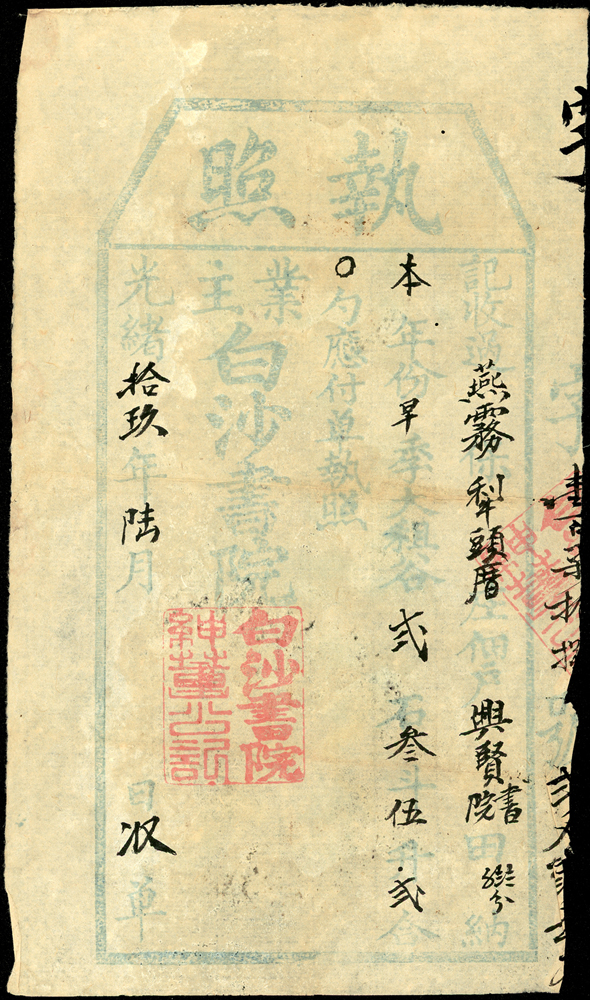 執照
記收過燕霧保犂頭厝庄佃興賢書院田納
本年份早季大租谷弍石叁斗伍升弍合
〇勻應付單執照
業主白沙書院
光緒拾玖年陸月日收單
白沙書院
紳董公記
字